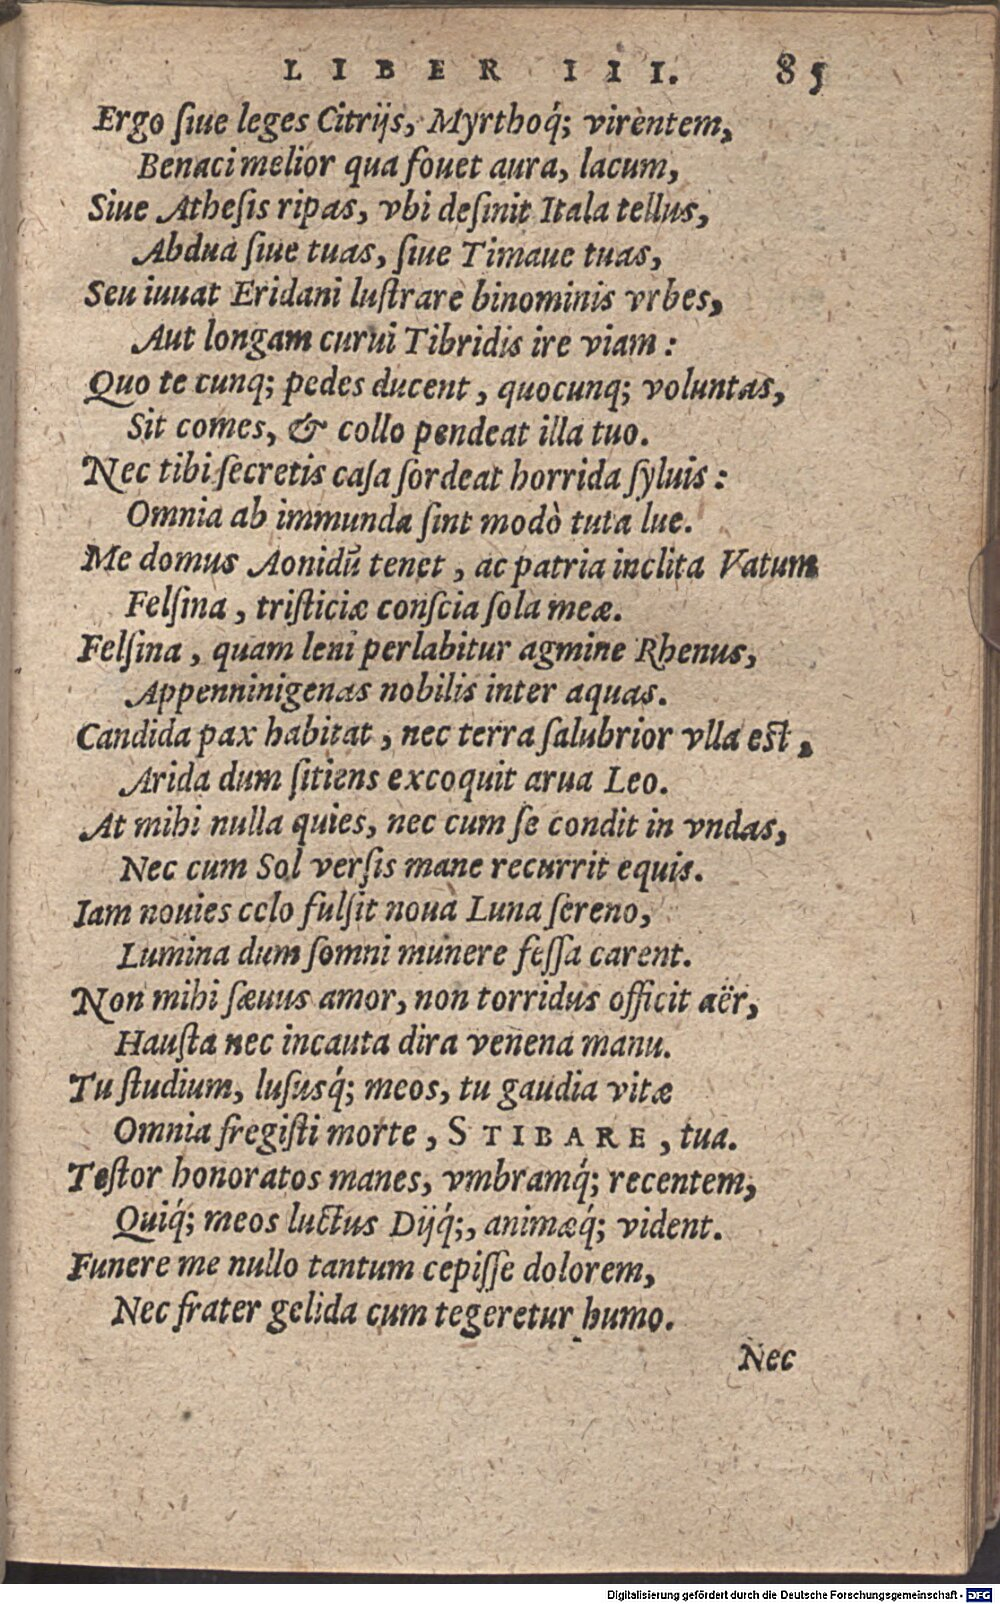 LIBER III. 85
Ergo ſiue leges Citrijs, Myrthoq́; virentem,
Benaci melior qua fouet aura, lacum,
Siue Atheſis ripas, vbi deſinit Itala tellus,
Abdua ſiue tuas, ſiue Timaue tuas,
Seu iuuat Eridani luſtrare binominis vrbes,
Aut longam curui Tibridis ire viam:
Quo te cunq; pedes ducent, quocunq; voluntas,
Sit comes, & collo pendeat illa tuo.
Nec tibi ſecretis caſa ſordeat horrida ſyluis:
Omnia ab immunda ſint modò tuta lue.
Me domus Aonidũ tenet, ac patria inclita Vatum
Felſina, triſticiæ conſcia ſola meæ.
Felſina, quam leni perlabitur agmine Rhenus,
Appenninigenas nobilis inter aquas.
Candida pax habitat, nec terra ſalubrior vlla est,
Arida dum ſitiens excoquit arua Leo.
At mihi nulla quies, nec cum ſe condit in vndas,
Nec cum Sol verſis mane recurrit equis.
Iam nouies celo fulſit noua Luna ſereno,
Lumina dum ſomni munere feſſa carent.
Non mihi ſæuus amor, non torridus officit aër,
Hauſta nec incauta dira venena manu.
Tu ſtudium, luſusq́; meos, tu gaudia vitæ
Omnia fregiſti morte, STIBARE, tua.
Teſtor honoratos manes, vmbramq́; recentem,
Quiq́; meos luctus Dijq́;, animæq́; vident.
Funere me nullo tantum cepiſſe dolorem,
Nec frater gelida cum tegeretur humo.
Nec
Digitalisierung gefördert durch die Deutsche Forschungsgemeinschaft - DFG